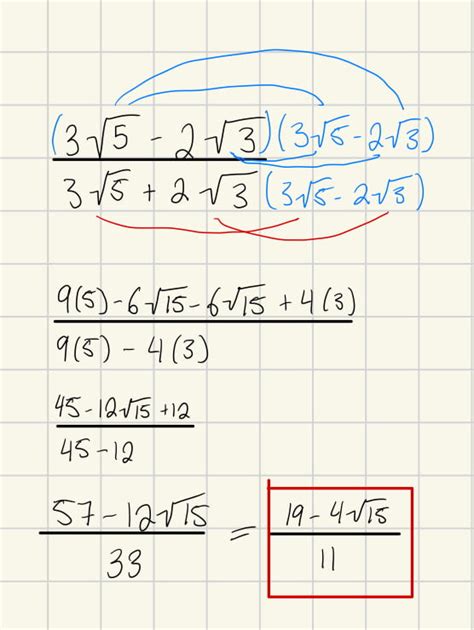 (3√5 - 2√3)(3√5 - 2√3)
3√5 + 2√3 (3√5 - 2√3)
9(5) - 6√15 - 6√15 + 4(3)
9(5) - 4(3)
45 - 12√15 + 12
45 - 12
57 - 12√15 = 19 - 4√15
33 11